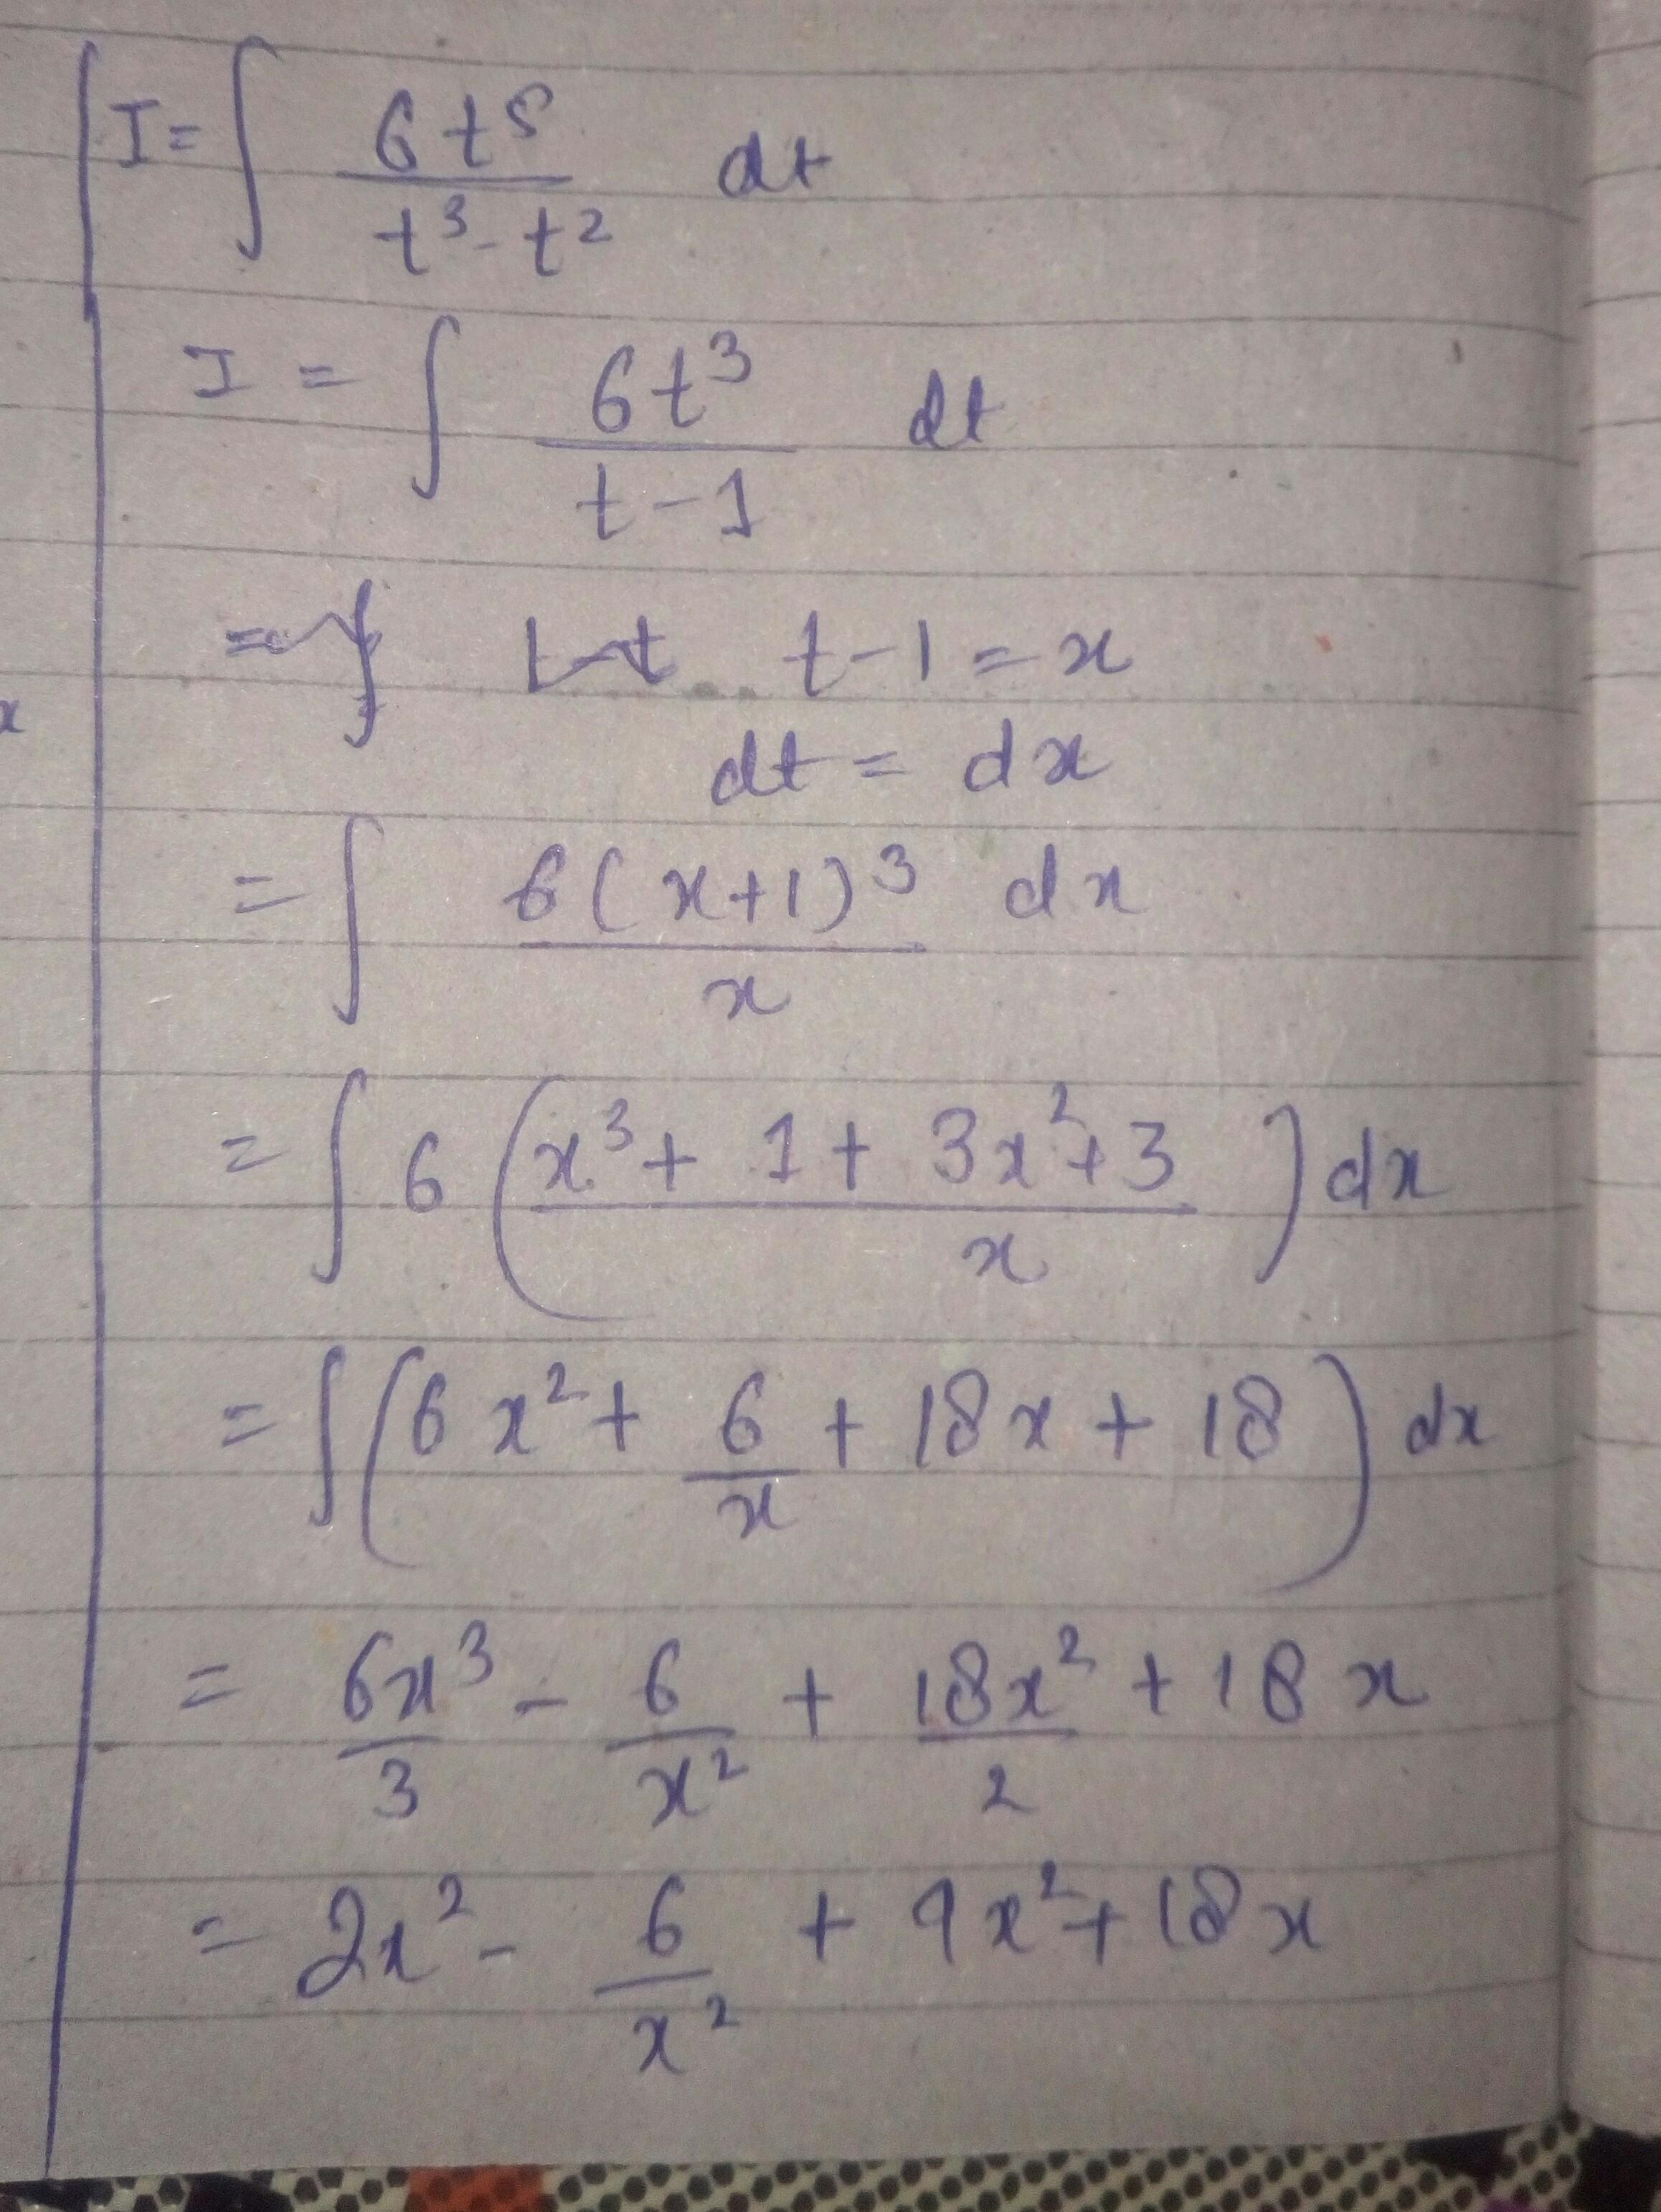 I = ∫ 6t⁵ / (t³ - t²) dt
I = ∫ 6t³ / (t - 1) dt
= ∫ Let t - 1 = x
dt = dx
x
= ∫ 6(x+1)³ / x dx
= ∫ 6 ( (x³ + 1 + 3x² + 3) / x ) dx
= ∫ ( 6x² + 6/x + 18x + 18 ) dx
= 6x³/3 - 6/x² + 18x²/2 + 18x
= 2x² - 6/x² + 9x² + 18x